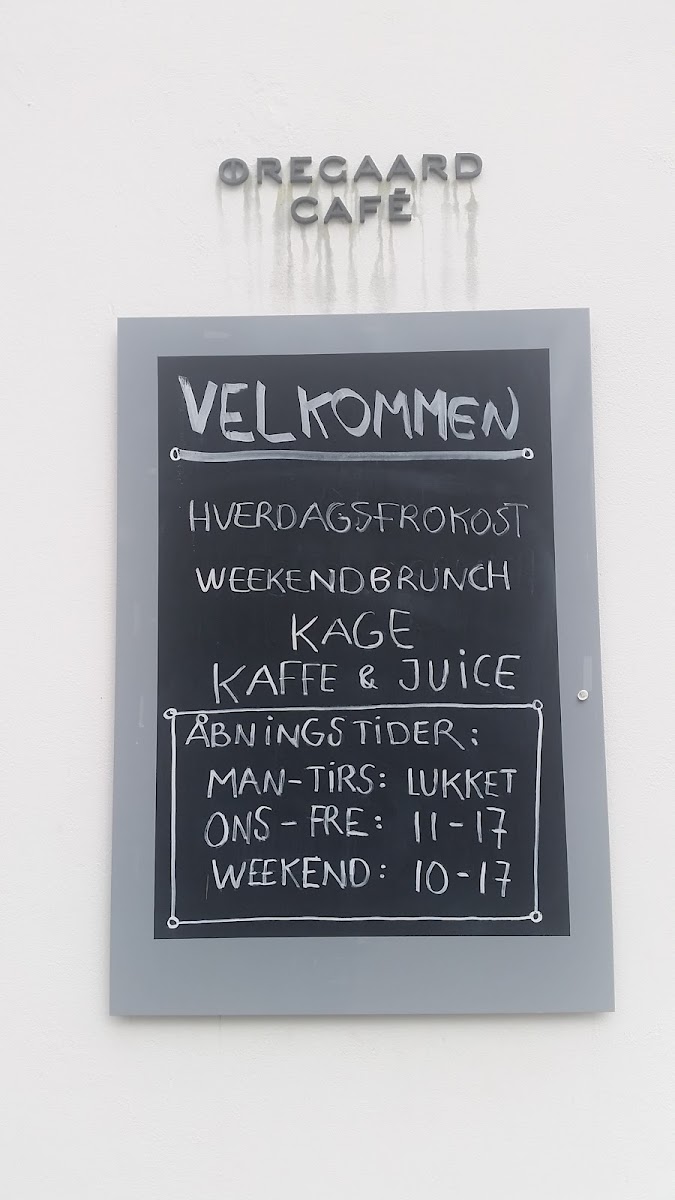 ØREGAARD
CAFÉ
VELKOMMEN
HVERDAGSFROKOST
WEEKENDBRUNCH
KAGE
KAFFE & JUICE
ÅBNINGSTIDER:
MAN-TIRS: LUKKET
ONS-FRE: 11-17
WEEKEND: 10-17